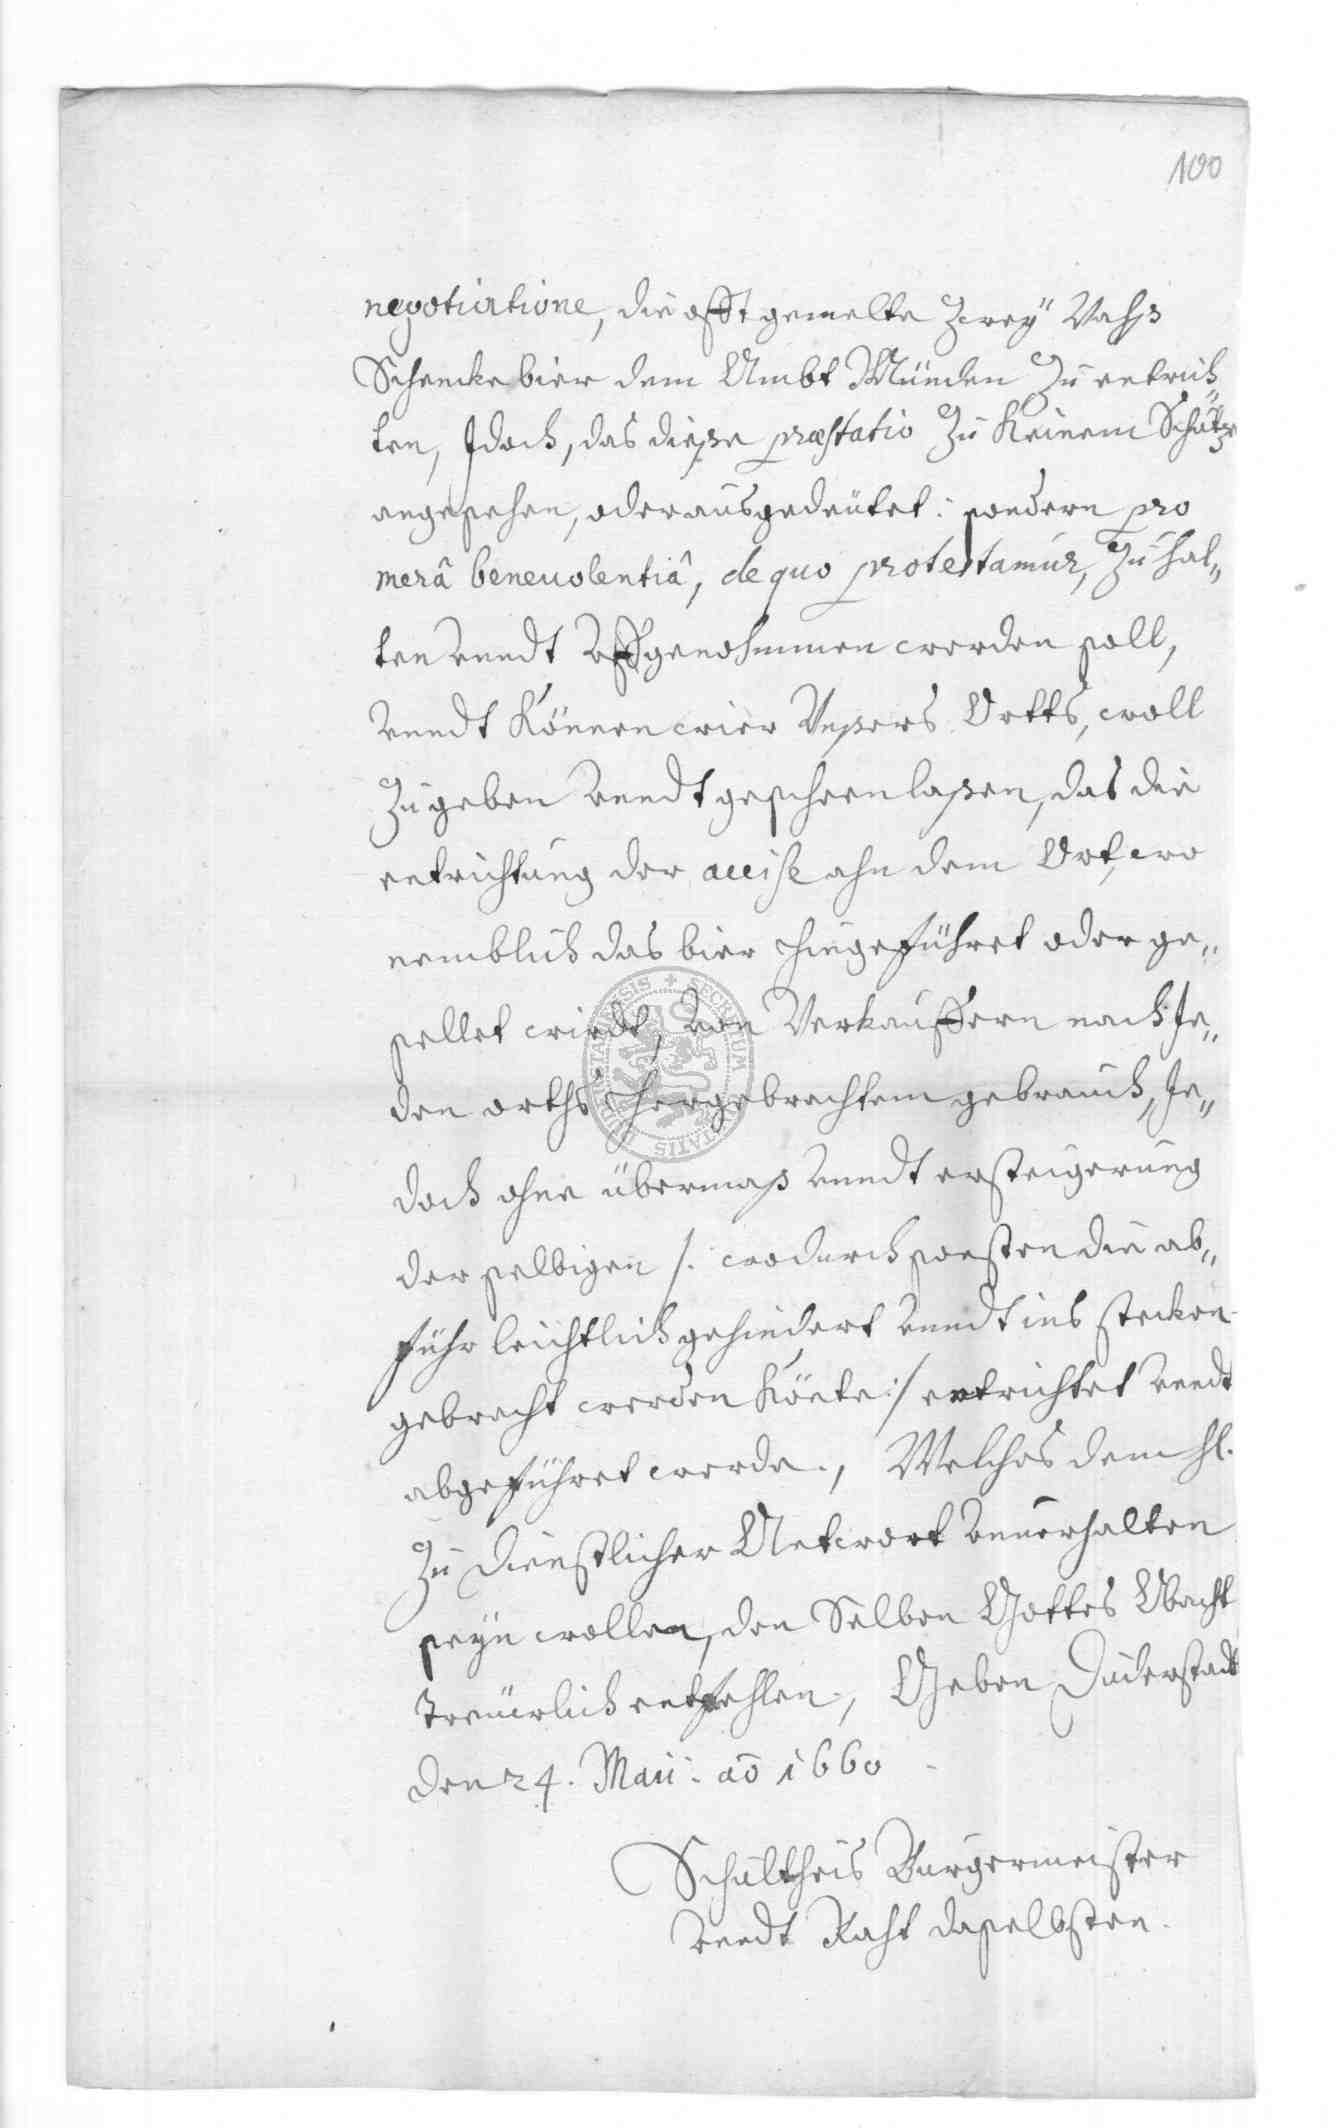 100
negotiatione, die offt gemelte Zwey Vahß
Schenckebier dem Ambt Münden Zu entrich„
ten, Jdoch, das dieße præstatio Zu Keinem Schatze
angesehen, oder ausgedeutet: sondern pro
merâ beneuolentiâ, de quo protestamur, Zu hal„
ten vnndt vffgenohmmen werden soll,
vnndt Können wier Vnsers Ortts, woll
Zugeben vnndt geschehen laßen, das die
entrichtung der accise ahn dem Ort, wo
nemblich das bier hingeführet oder ge„
sellet wirdt, von Verkauffern nach Je„
den orths hergebrachtem gebrauch, Je„
doch ohne übermaß vnndt ersteigerung
derselbigen /: wodurch sonsten die ab„
führ leichtlich gehindert vnndt ins stecken
gebracht werden Könte :/ entrichtet vnndt
abgeführet werde., Welches dem H.
Zu dienstlicher Antwort vnuerhalten
seyn wollen, den Selben Gottes Obacht
treuwlich entpfehlen., Geben Duderstadt
den 24. Maii. aō 1660
Schultheis Burgermeister
vnndt Raht daselbsten.
SECRETUM